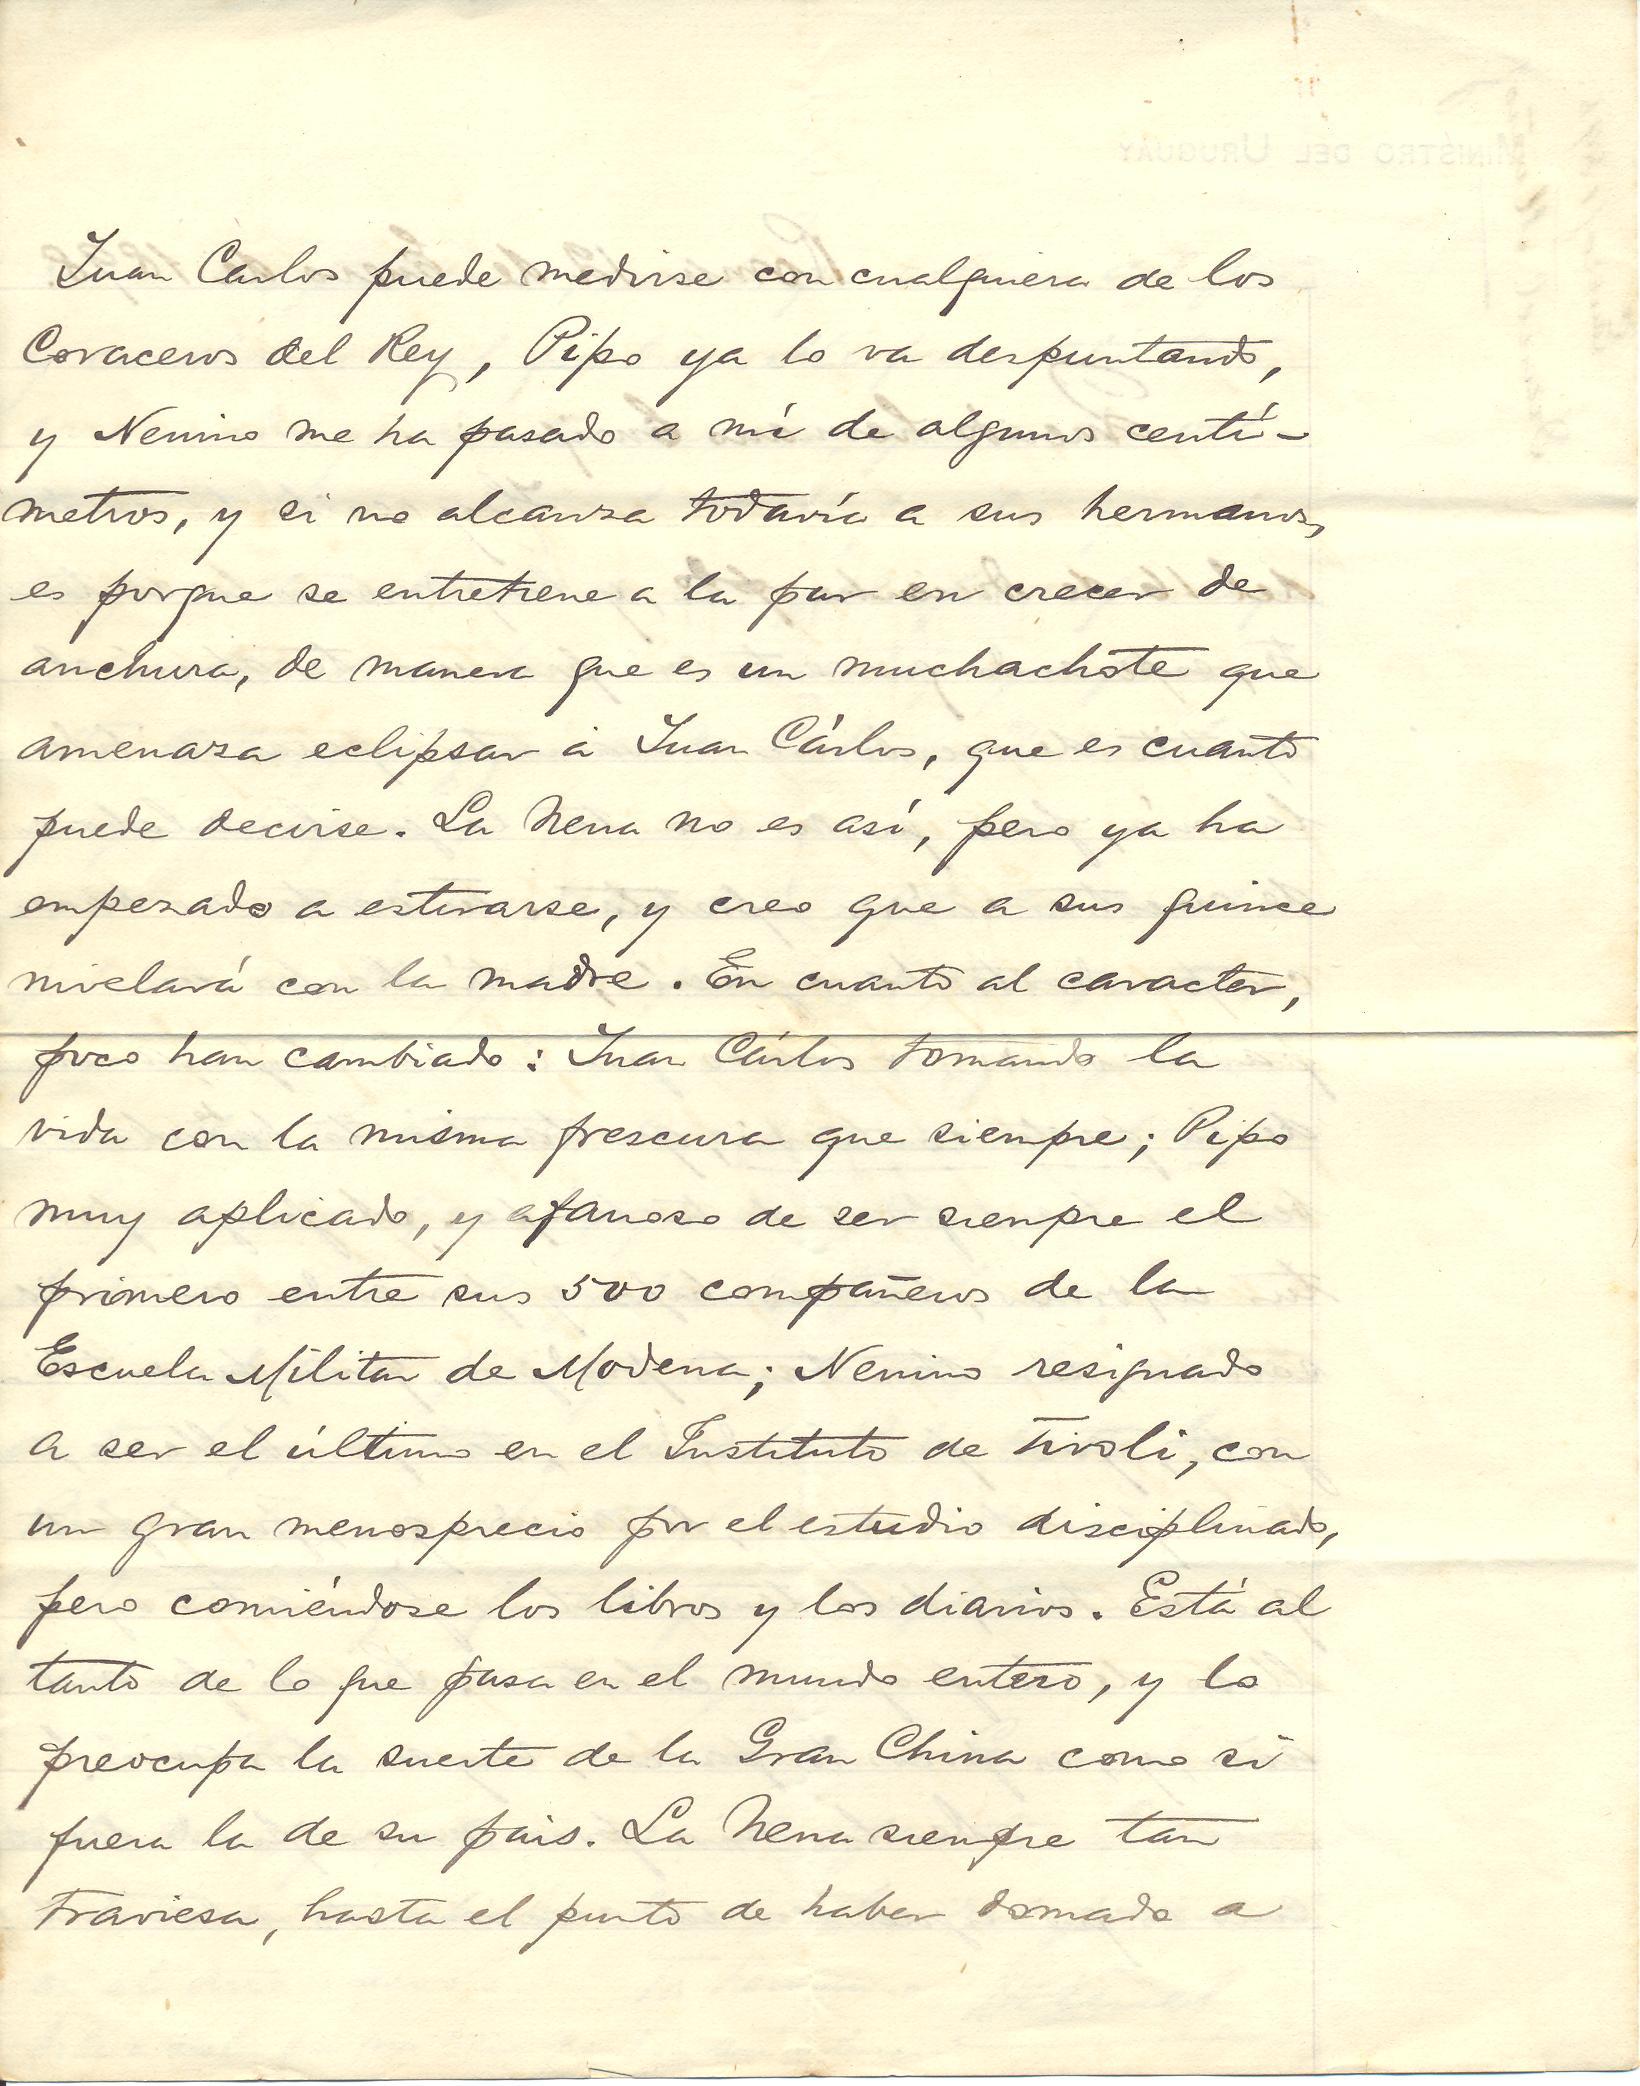 Juan Carlos puede medirse con cualquiera de los
Coraceros del Rey, Pipo ya lo va despuntando,
y Nenino me ha pasado a mí de algunos centí-
metros, y si no alcanza todavía a sus hermanos,
es porque se entretiene a la par en crecer de
anchura, de manera que es un muchachote que
amenaza eclipsar á Juan Cárlos, que es cuanto
puede decirse. La Nena no es así, pero ya ha
empezado a estirarse, y creo que a sus quince
nivelará con la madre. En cuanto al caracter,
poco han cambiado: Juan Cárlos tomando la
vida con la misma frescura que siempre; Pipo
muy aplicado, y afanoso de ser siempre el
primero entre sus 500 compañeros de la
Escuela Militar de Modena; Nenino resignado
a ser el último en el Instituto de Tivoli, con
un gran menosprecio por el estudio disciplinado,
pero comiéndose los libros y los diarios. Está al
tanto de lo que pasa en el mundo entero, y lo
preocupa la suerte de la Gran China como si
fuera la de su pais. La Nena siempre tan
traviesa, hasta el punto de haber domado a